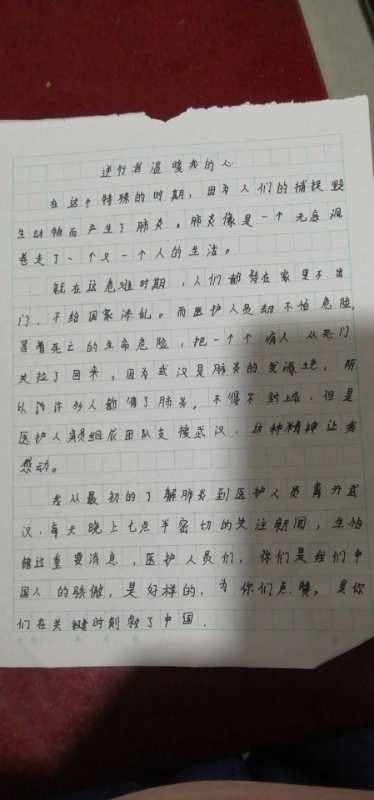 逆行者温暖我的心
在这个特殊的时期,因为人们的捕捉野
生动物而产生了肺炎。肺炎像是一个无底洞
卷走了一个又一个人的生活。
就在这危难时期,人们都待在家里不出
门,不给国家添乱。而医护人员却不怕危险,
冒着死亡的生命危险,把一个个病人从死门
关拉了回来,因为武汉是肺炎的发源地,所
以许许多人都得了肺炎,不得不封城,但是
医护人员组成团队支援武汉,这种精神让我
感动。
我从最初的了解肺炎到医护人员离开武
汉,每天晚上七点半密切的关注新闻,生怕
错过重要消息,医护人员们,你们是我们中
国人的骄傲,是好样的,为你们点赞,是你
们在关键时刻救了中国.